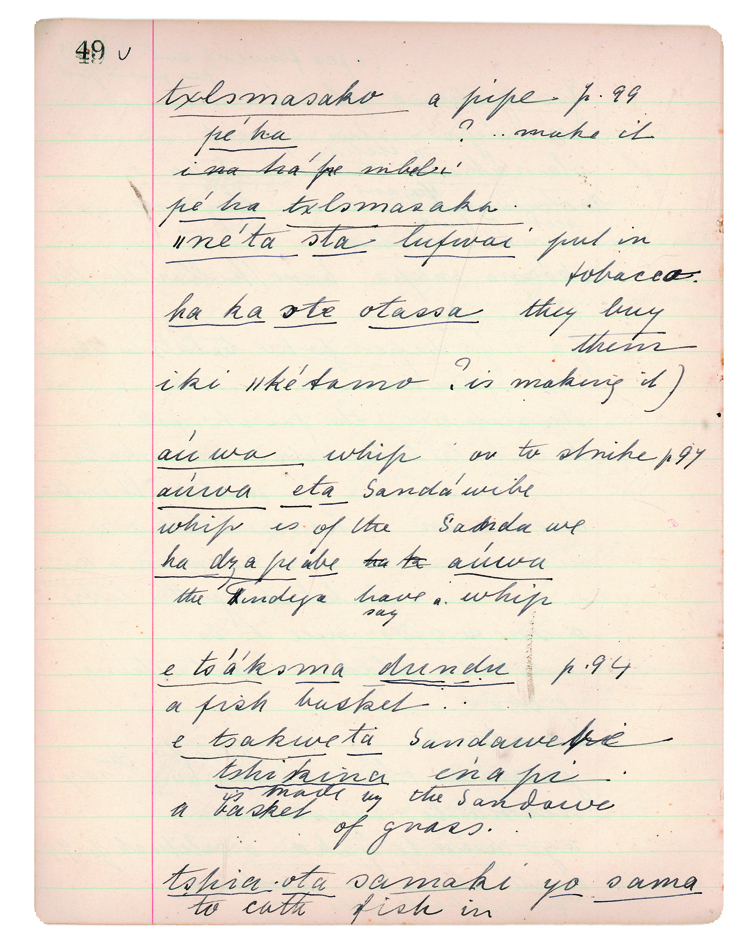 49 v
txlsmasako a pipe. p. 99
pé ha ? .. make it
i na há pe mbeli
pé ha txlsmasaka.
"né'ta sta lufwai put in
tobacco.
ha ka ote otassa they buy
them
iki "kétamo ? is making it)
aúwa whip or to strike p 97
aúwa eta Sandáwibe
whip is of the Sandawe
ha dzapeabe ha ta aúwa
the Tindiga have a whip
say
e tsáksma dundu p. 94
a fish basket . .
e tsakweta Sandawe
tshikina enapi .
is made by the Sandawe
a basket
of grass.
tspia ota samaki yo sama
to cath fish in